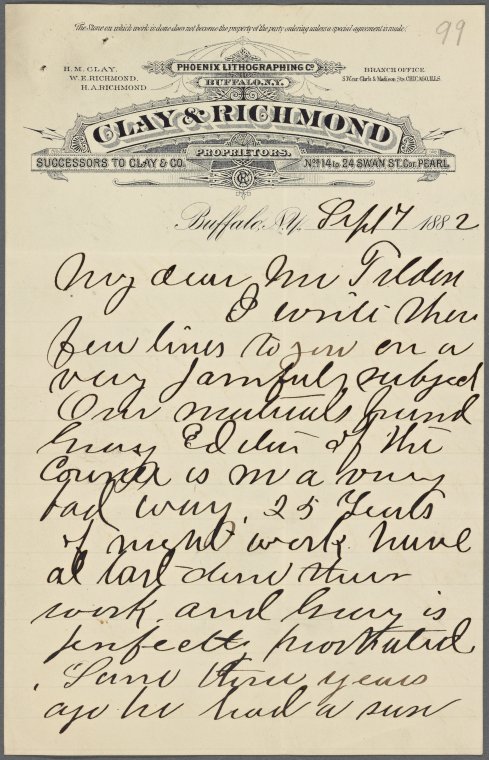 The Stone on which work is done does not become the property of the party ordering unless a special agreement is made.
99
H. M. CLAY.
W. E. RICHMOND.
H. A. RICHMOND
PHOENIX LITHOGRAPHING Co
BUFFALO, N.Y.
BRANCH OFFICE
S.W. cor. Clark & Madison Sts. CHICAGO, ILLS.
CLAY & RICHMOND
PROPRIETORS.
SUCCESSORS TO CLAY & CO.
Nos 14 to 24 SWAN ST. Cor PEARL
CR
Buffalo, N.Y. Sept 7 1882
My dear Mr Tilden
I write these
few lines to you on a
very painful subject
Our mutual friend
Gray Editor of the
Courier is in a very
bad way. 25 Years
of night work have
at last done their
work and Gray is
perfectly prostrated
Some three years
ago he had a sun